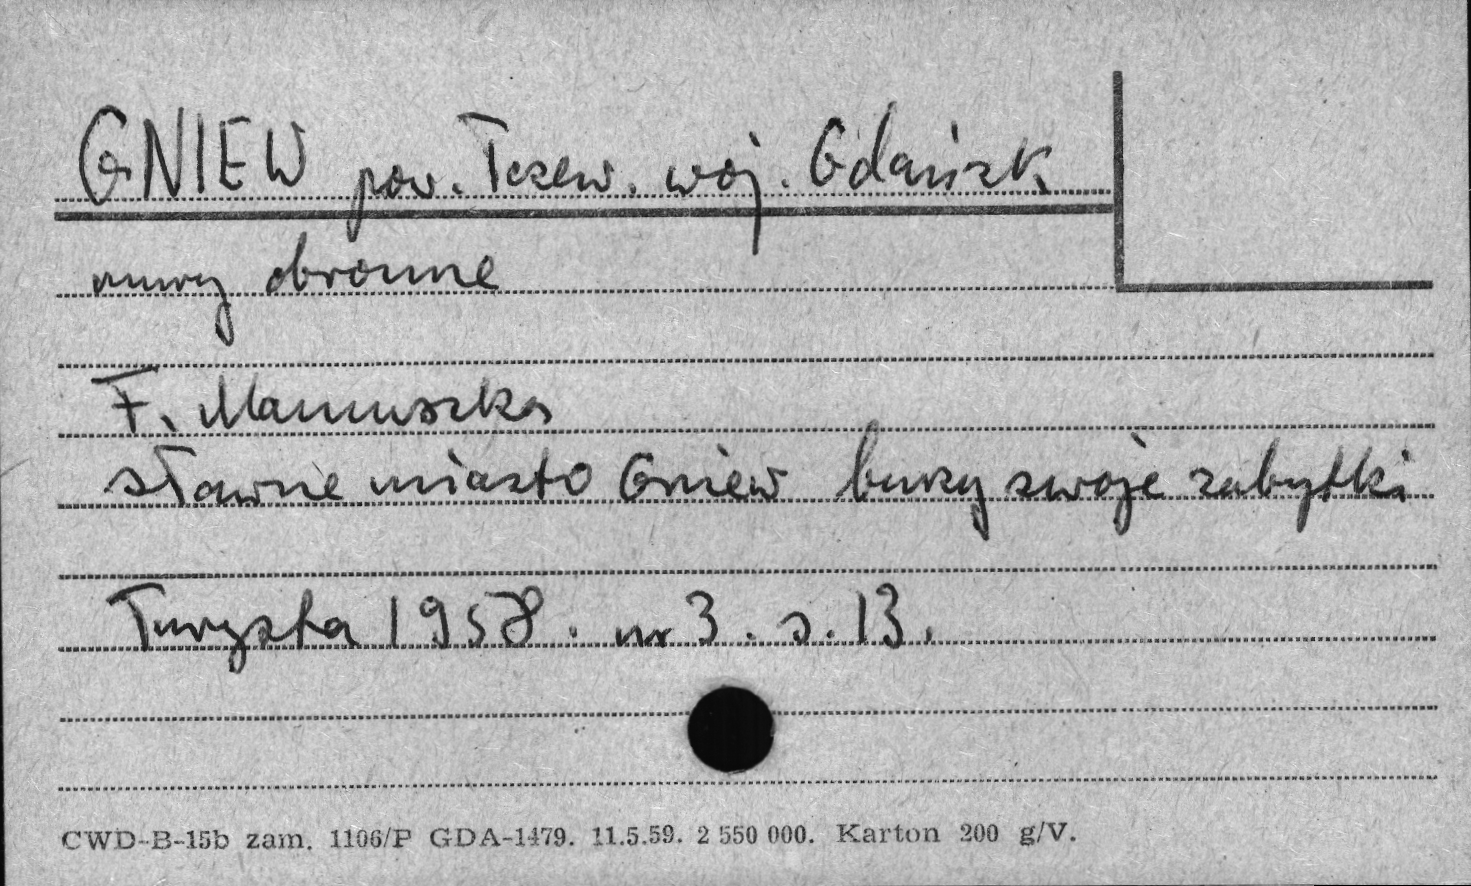 GNIEW pow. Tczew. woj. Gdańsk
mury obronne
F. Mamuszka
sławne miasto Gniew burzy swoje zabytki
Turysta 1958. nr 3. s. 13.
CWD-B-15b zam. 1106/P GDA-1479. 11.5.59. 2 550 000. Karton 200 g/V.